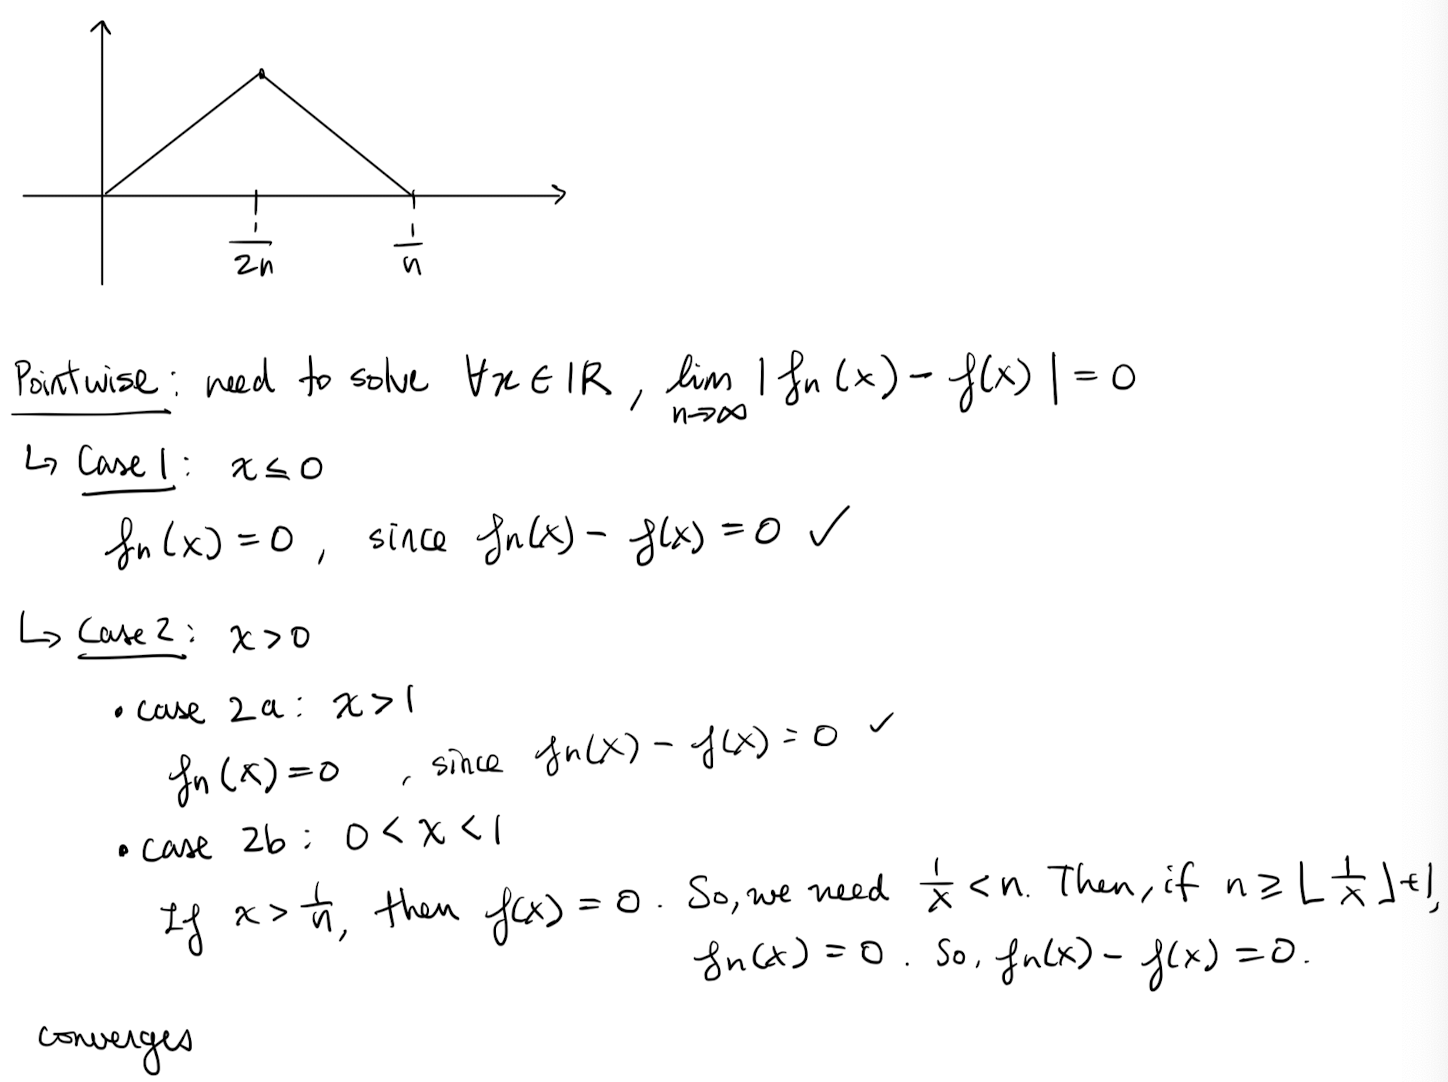 1/2n 1/n
Pointwise: need to solve ∀x ∈ ℝ, lim n→∞ | fn(x) - f(x) | = 0
↳ Case 1: x ≤ 0
fn(x) = 0, since fn(x) - f(x) = 0 ✓
↳ Case 2: x > 0
• case 2a: x > 1
fn(x) = 0, since fn(x) - f(x) = 0 ✓
• case 2b: 0 < x < 1
If x > 1/n, then f(x) = 0. So, we need 1/x < n. Then, if n ≥ ⌊1/x⌋+1,
fn(x) = 0. So, fn(x) - f(x) = 0.
converges